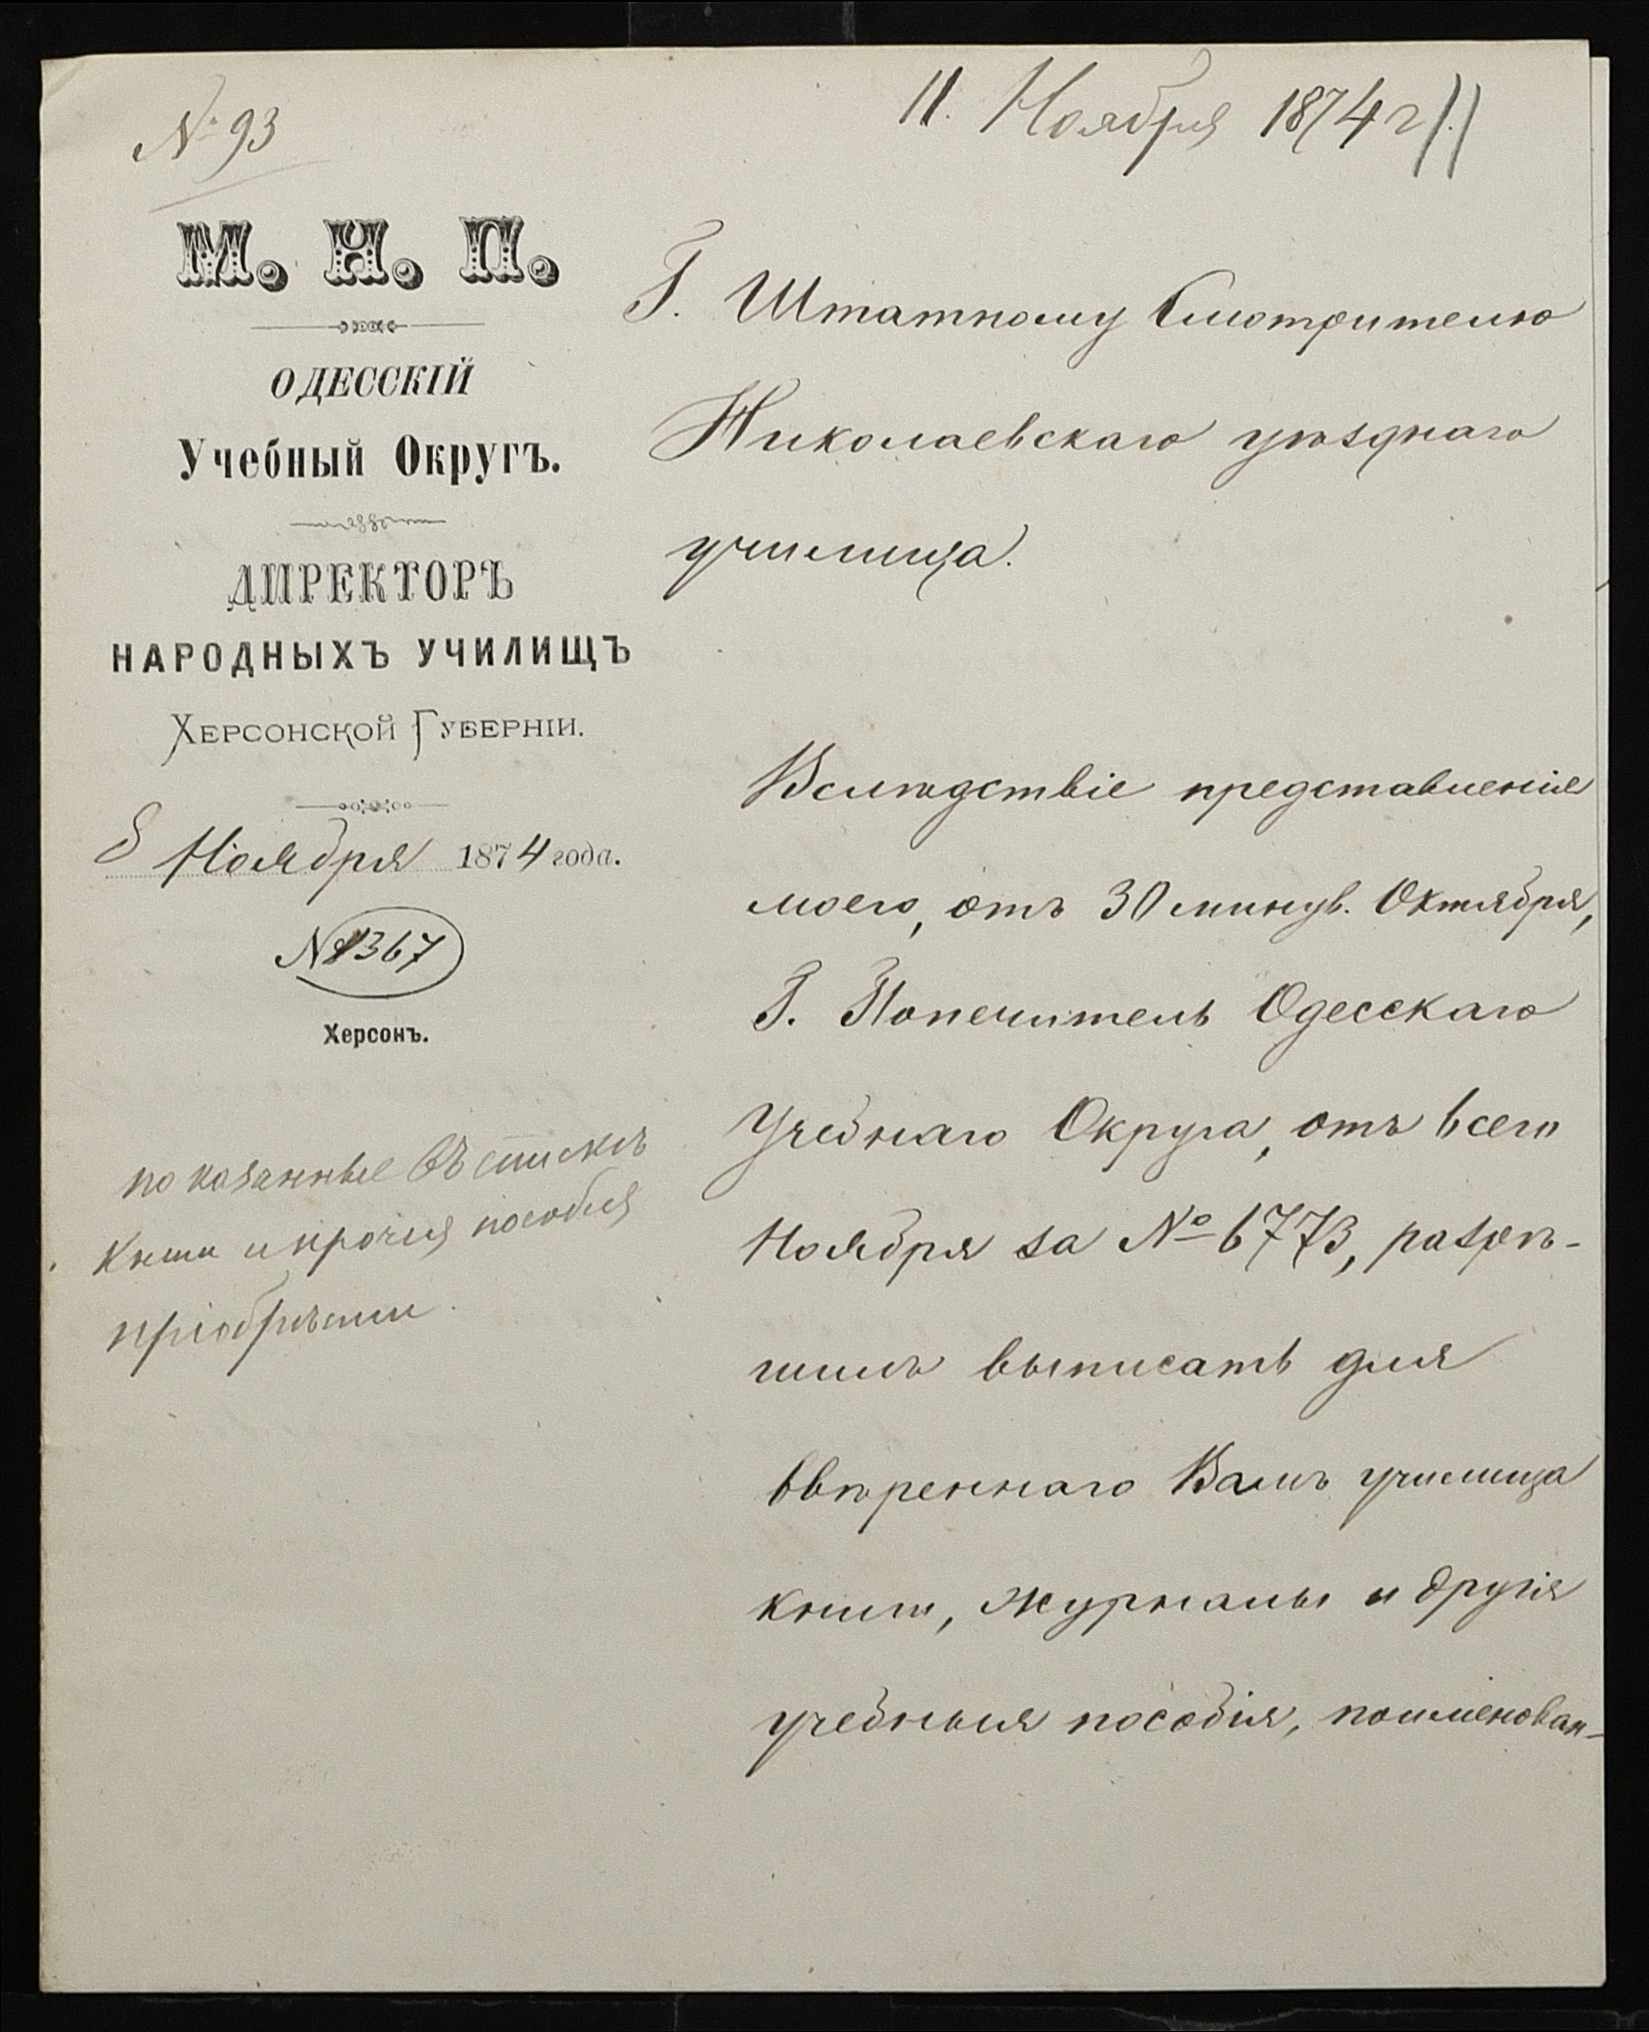 № 93
11. Ноября 1874 г.
М. Н. П.
ОДЕССКІЙ
Учебный Округъ.
ДИРЕКТОРЪ
НАРОДНЫХЪ УЧИЛИЩЪ
ХЕРСОНСКОЙ ГУБЕРНІИ.
8 Ноября 1874 года.
№ 1367
Херсонъ.
показанные въ списке
книги и прочія пособія
пріобрѣсти.
Г. Штатному Смотрителю
Николаевскаго уѣзднаго
училища.
Вслѣдствіе представленія
моего, отъ 30 минув. Октября,
Г. Попечитель Одесскаго
Учебнаго Округа, отъ 6 сего
Ноября за № 6773, разрѣ-
шилъ выписать для
ввѣреннаго Вамъ училища
книги, журналы и другія
учебныя пособія, поименован-